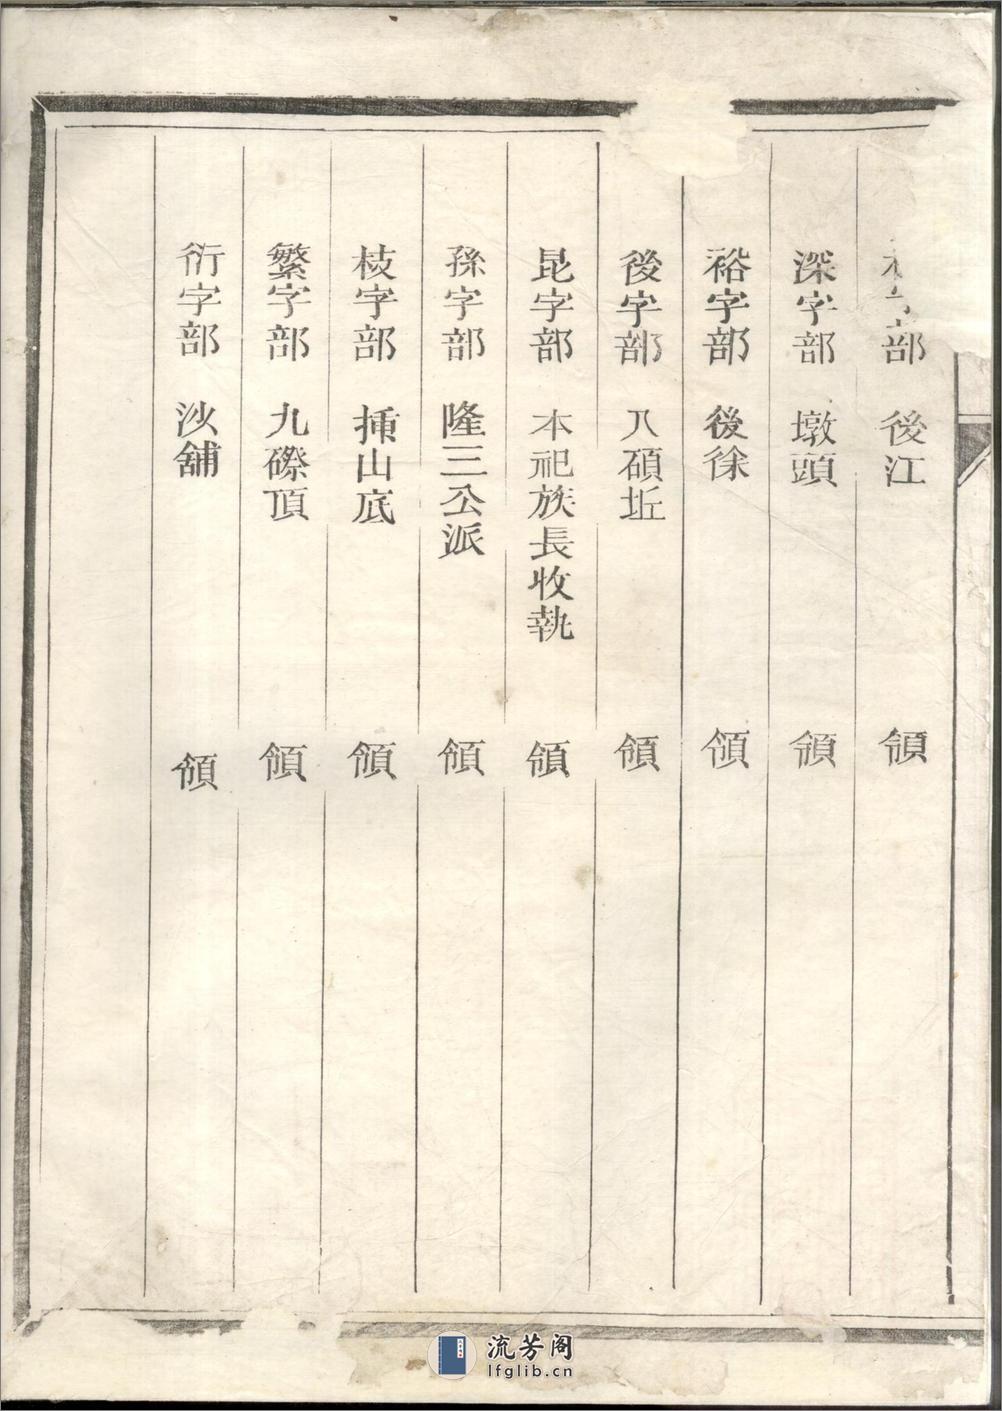 字部 後江 領
深字部 墩頭 領
裕字部 後徐 領
後字部 八碩坵 領
昆字部 本祀族長收執 領
孫字部 隆三公派 領
枝字部 插山底 領
繁字部 九磜頂 領
衍字部 沙舖 領
流芳阁
lfglib.cn